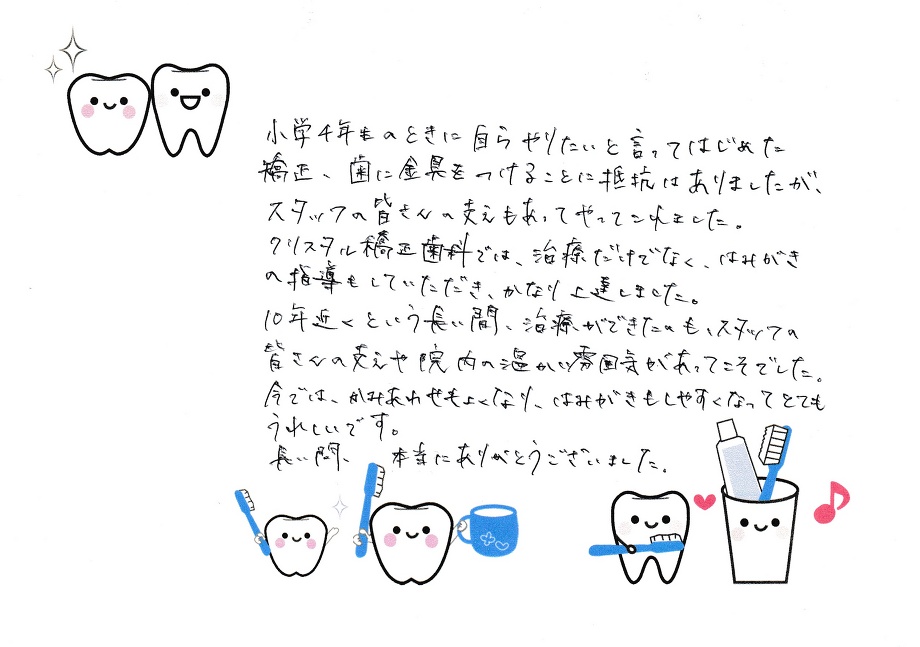 小学4年生のときに自らやりたいと言ってはじめた
矯正、歯に金具をつけることに抵抗はありましたが、
スタッフの皆さんの支えもあってやってこれました。
クリスタル矯正歯科では、治療だけでなく、はみがき
の指導もしていただき、かなり上達しました。
10年近くという長い間、治療ができたのも、スタッフの
皆さんの支えや院内の温かい雰囲気があってこそでした。
今では、かみあわせもよくなり、はみがきもしやすくなってとても
うれしいです。
長い間、本当にありがとうございました。